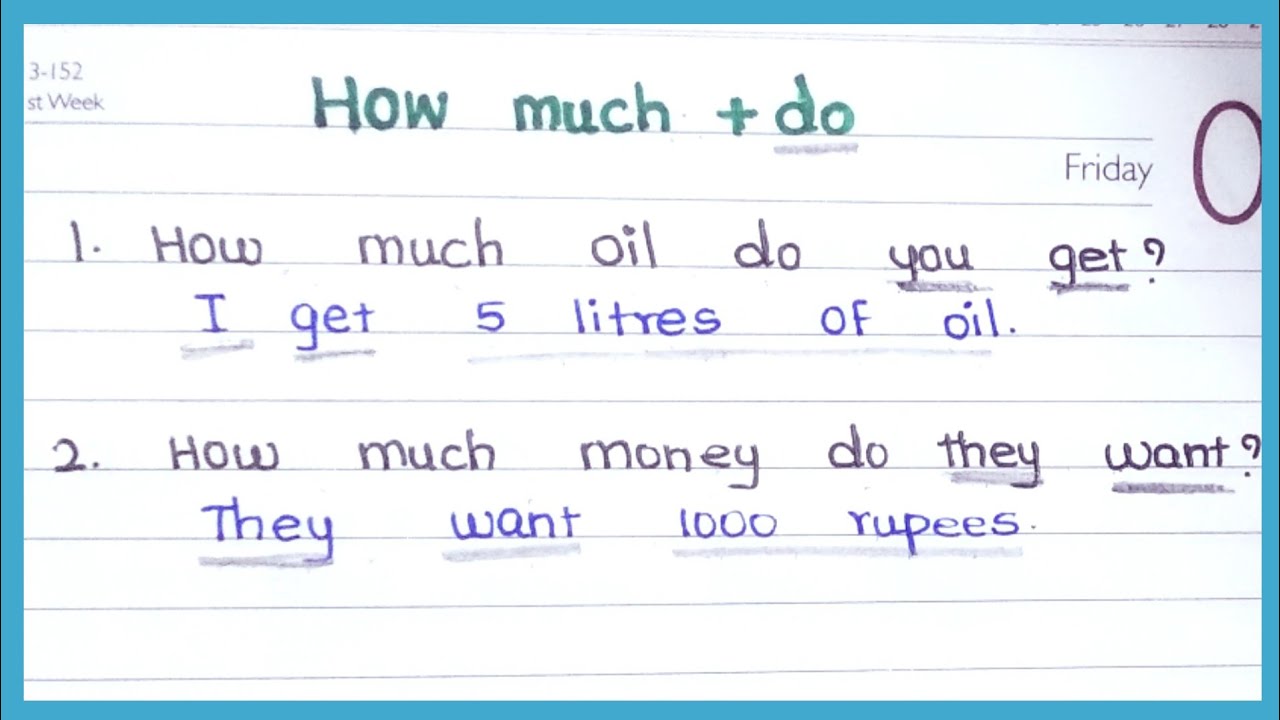 3-152
st Week
How much + do
Friday
1. How much oil do you get?
I get 5 litres of oil.
2. How much money do they want?
They want 1000 rupees.